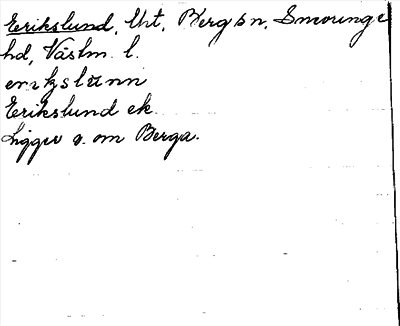 Erikslund, Urt, Bergs sn, Snevringe
hd, Västm. l.
Erikslund ek.
Ligger o. om Berga.